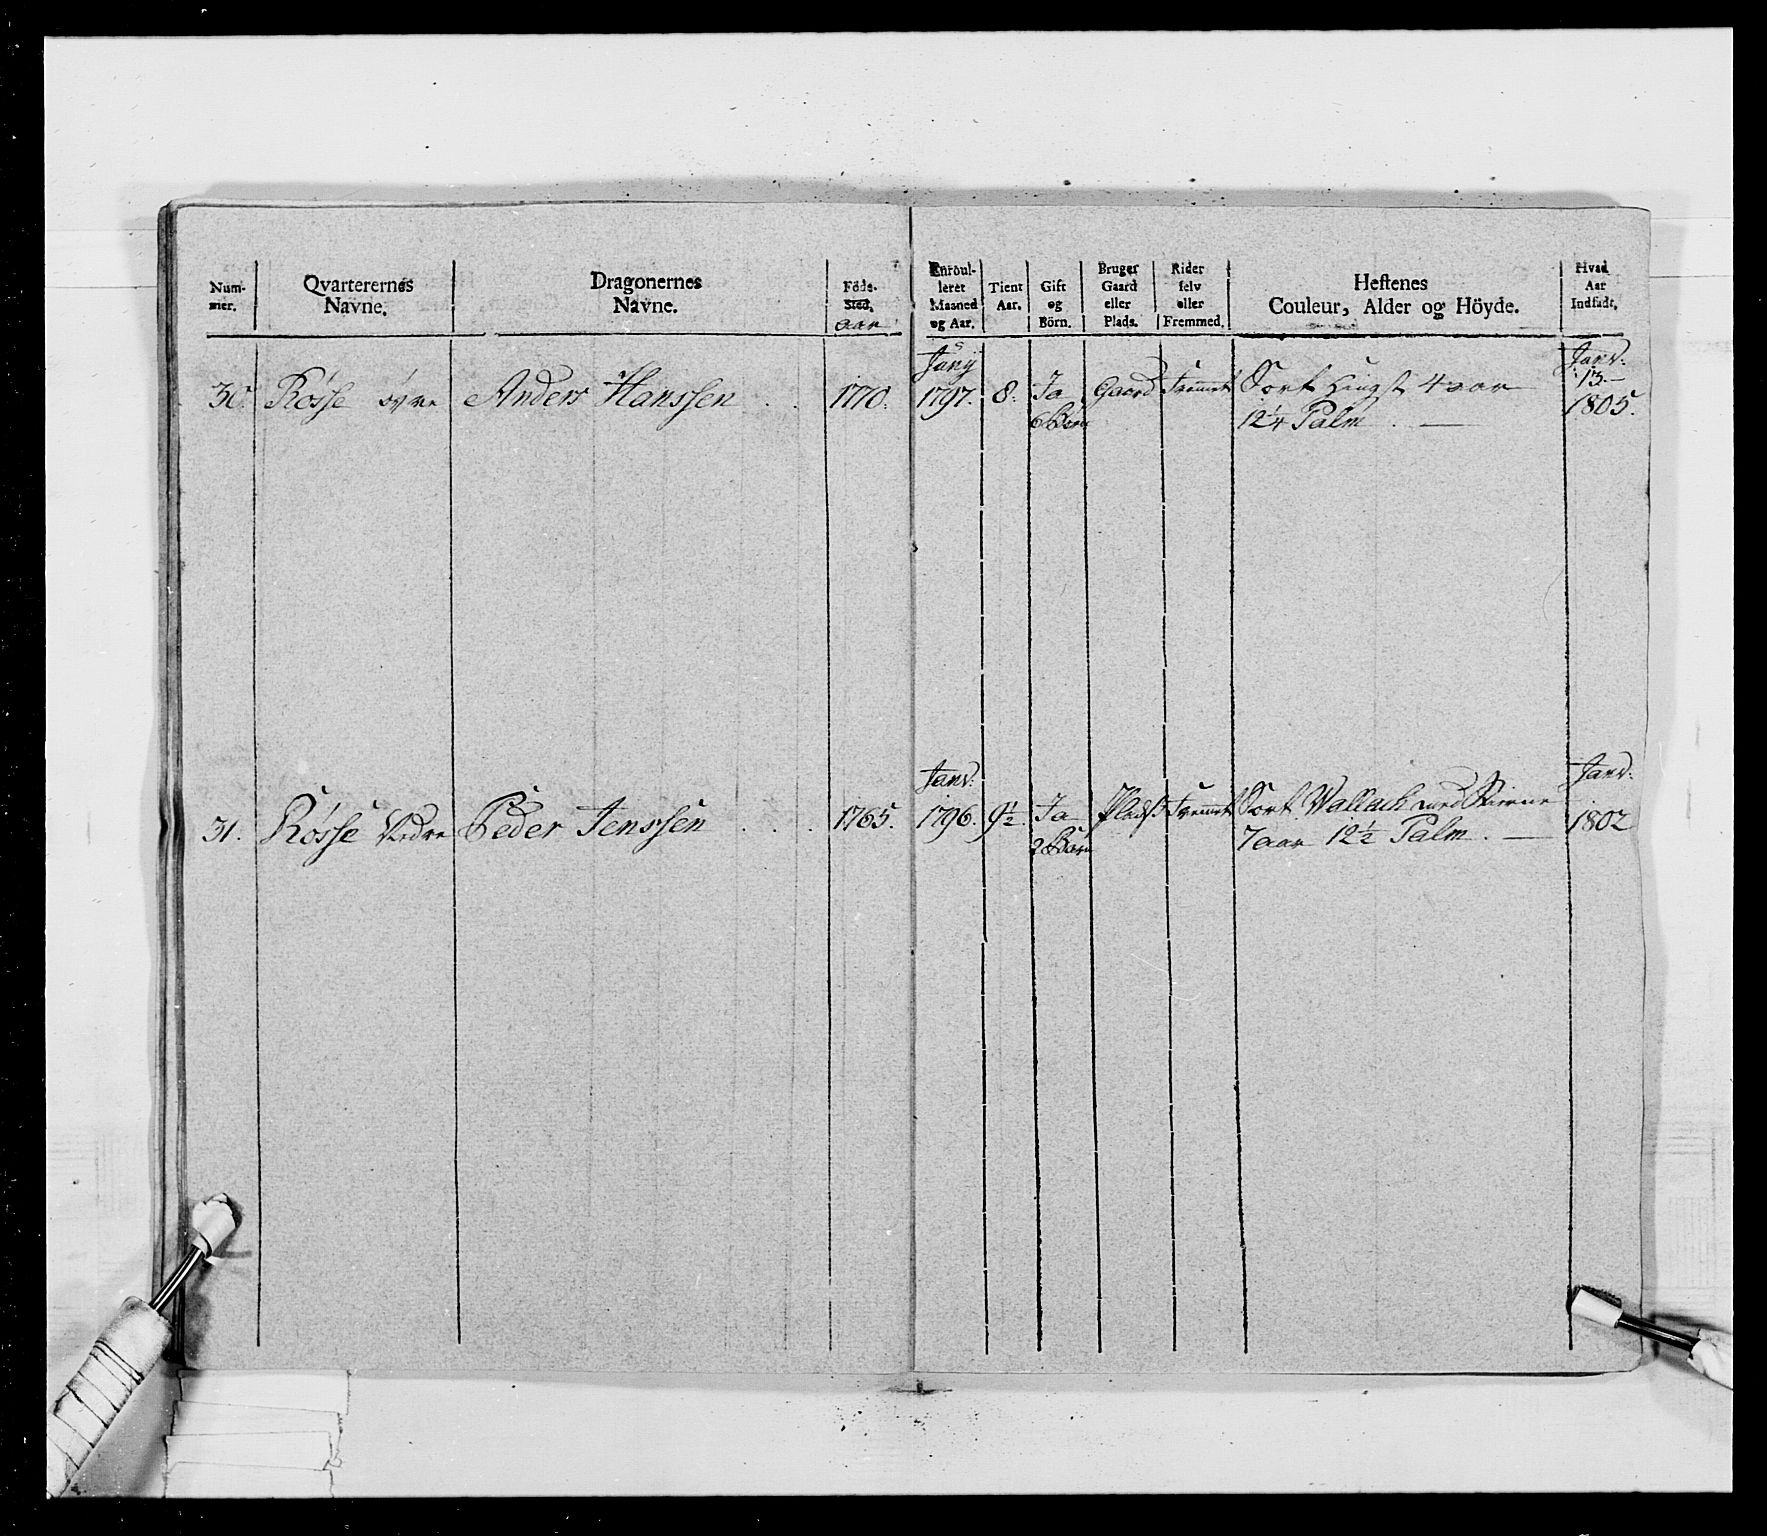 Num-
mer.
Qvarterernes
Navne.
Dragonernes
Navne.
Föde-
Sted.
aar
Enroul-
leret
Maaned
og Aar.
Tient
Aar.
Gift
og
Börn.
Bruger
Gaard
eller
Plads.
Rider
selv
eller
Fremmed.
Hestenes
Couleur, Alder og Höyde.
Hvad
Aar
Indsadt.
30. Røsse øvre Anders Hanssen . . 1770.
Junij
1797. 8. Ja
6 Børn
Gaard Fremet
Sort Hingst 4 aar
12¼ Palm . —
Janv:
13.—
1805.
31. Røsse Nedre Peder Jenssen . . . 1765.
Janv:
1796. 9½. Ja
2 Børn
Pladss Fremet
Sort Wallach med Stierne
7 aar 12½ Palm . —
Janv:
1802